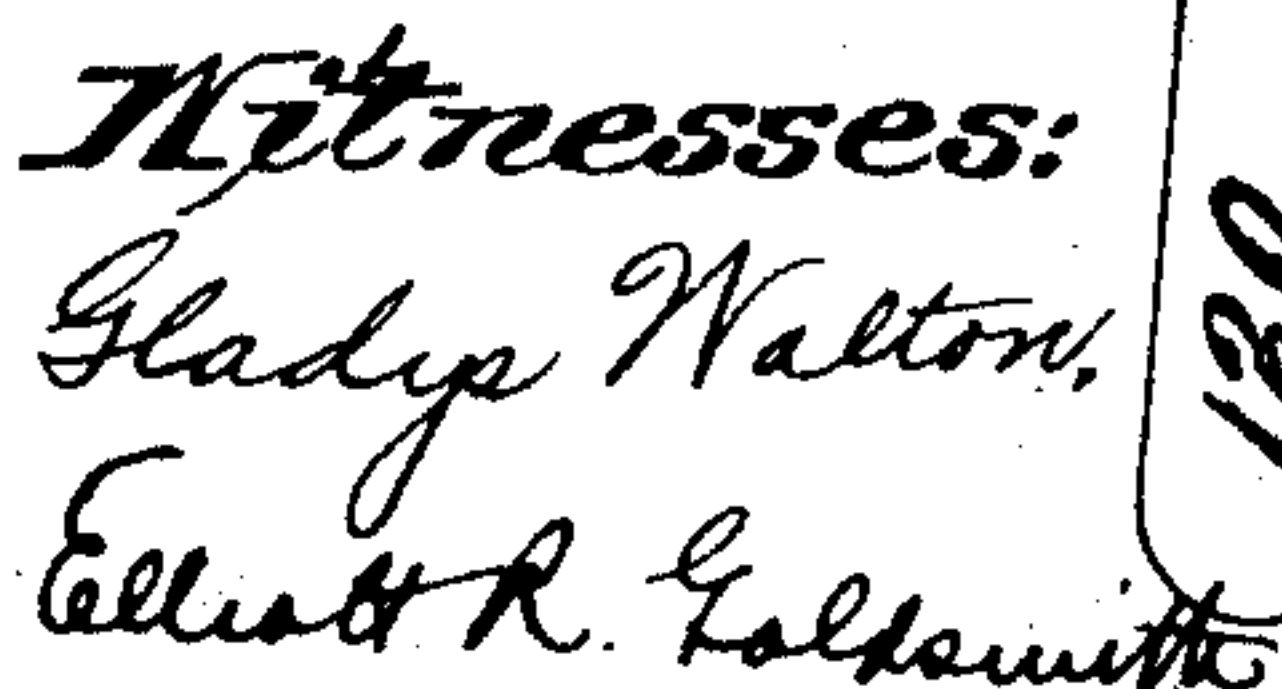 Witnesses:
Gladys Walton.
Elliott R. Goldsmith